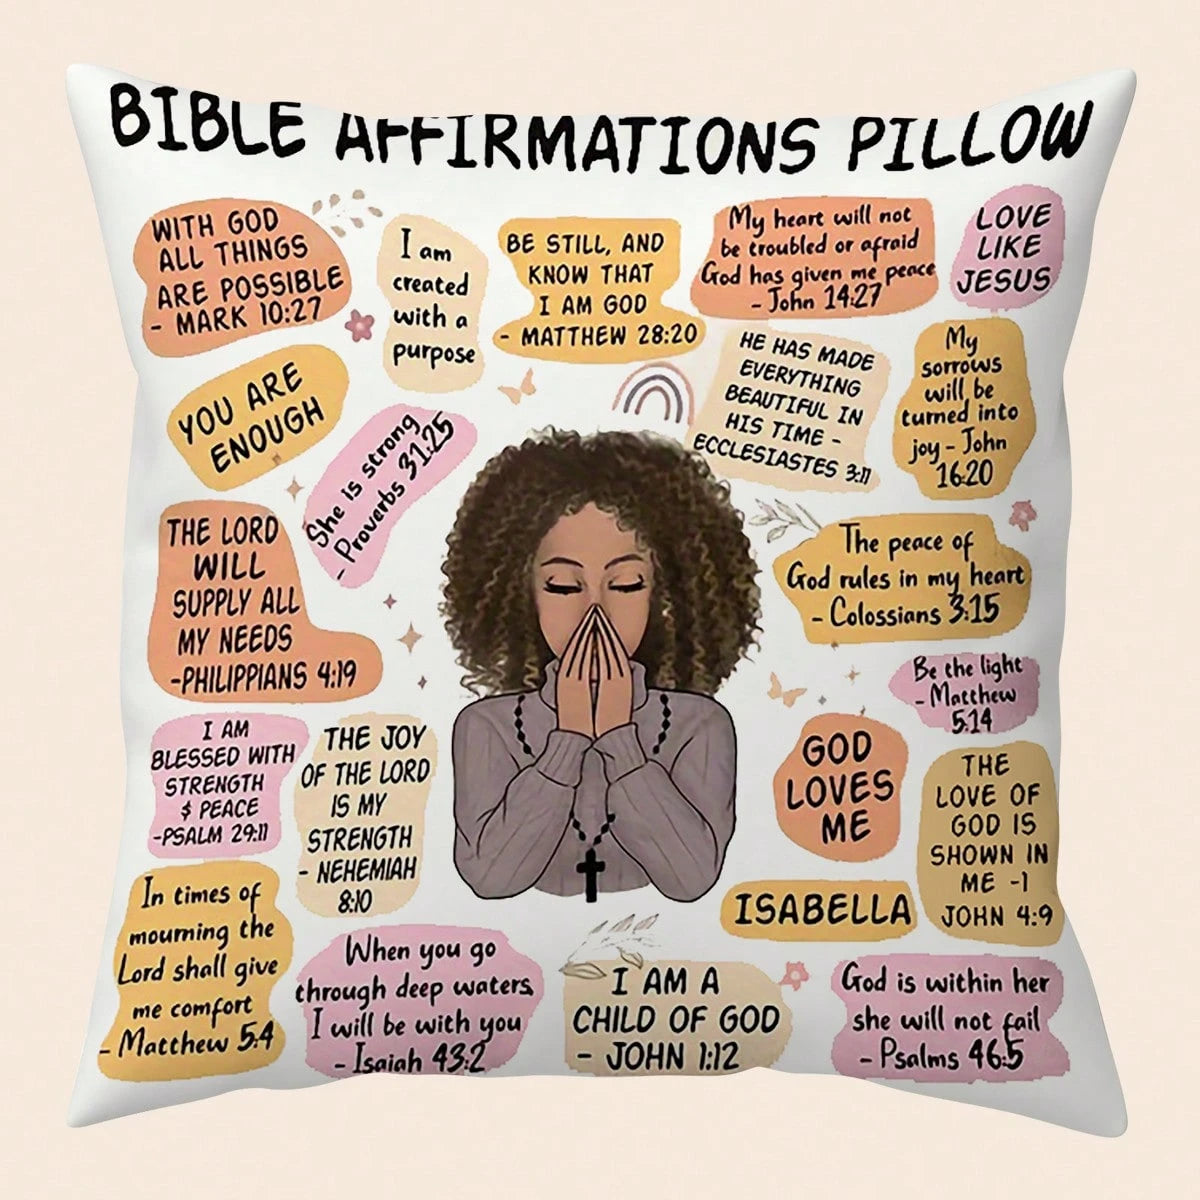 BIBLE AFFIRMATIONS PILLOW
WITH GOD
ALL THINGS
ARE POSSIBLE
- MARK 10:27
I am
created
with a
purpose
BE STILL, AND
KNOW THAT
I AM GOD
- MATTHEW 28:20
My heart will not
be troubled or afraid
God has given me peace
- John 14:27
LOVE
LIKE
JESUS
YOU ARE
ENOUGH
She is strong
- Proverbs 31:25
HE HAS MADE
EVERYTHING
BEAUTIFUL IN
HIS TIME -
ECCLESIASTES 3:11
My
sorrows
will be
turned into
joy - John
16:20
THE LORD
WILL
SUPPLY ALL
MY NEEDS
-PHILIPPIANS 4:19
The peace of
God rules in my heart
- Colossians 3:15
Be the light
- Matthew
5:14
I AM
BLESSED WITH
STRENGTH
& PEACE
-PSALM 29:11
THE JOY
OF THE LORD
IS MY
STRENGTH
- NEHEMIAH
8:10
GOD
LOVES
ME
THE
LOVE OF
GOD IS
SHOWN IN
ME -1
JOHN 4:9
ISABELLA
In times of
mourning the
Lord shall give
me comfort
- Matthew 5:4
When you go
through deep waters,
I will be with you
- Isaiah 43:2
I AM A
CHILD OF GOD
- JOHN 1:12
God is within her
she will not fail
- Psalms 46:5